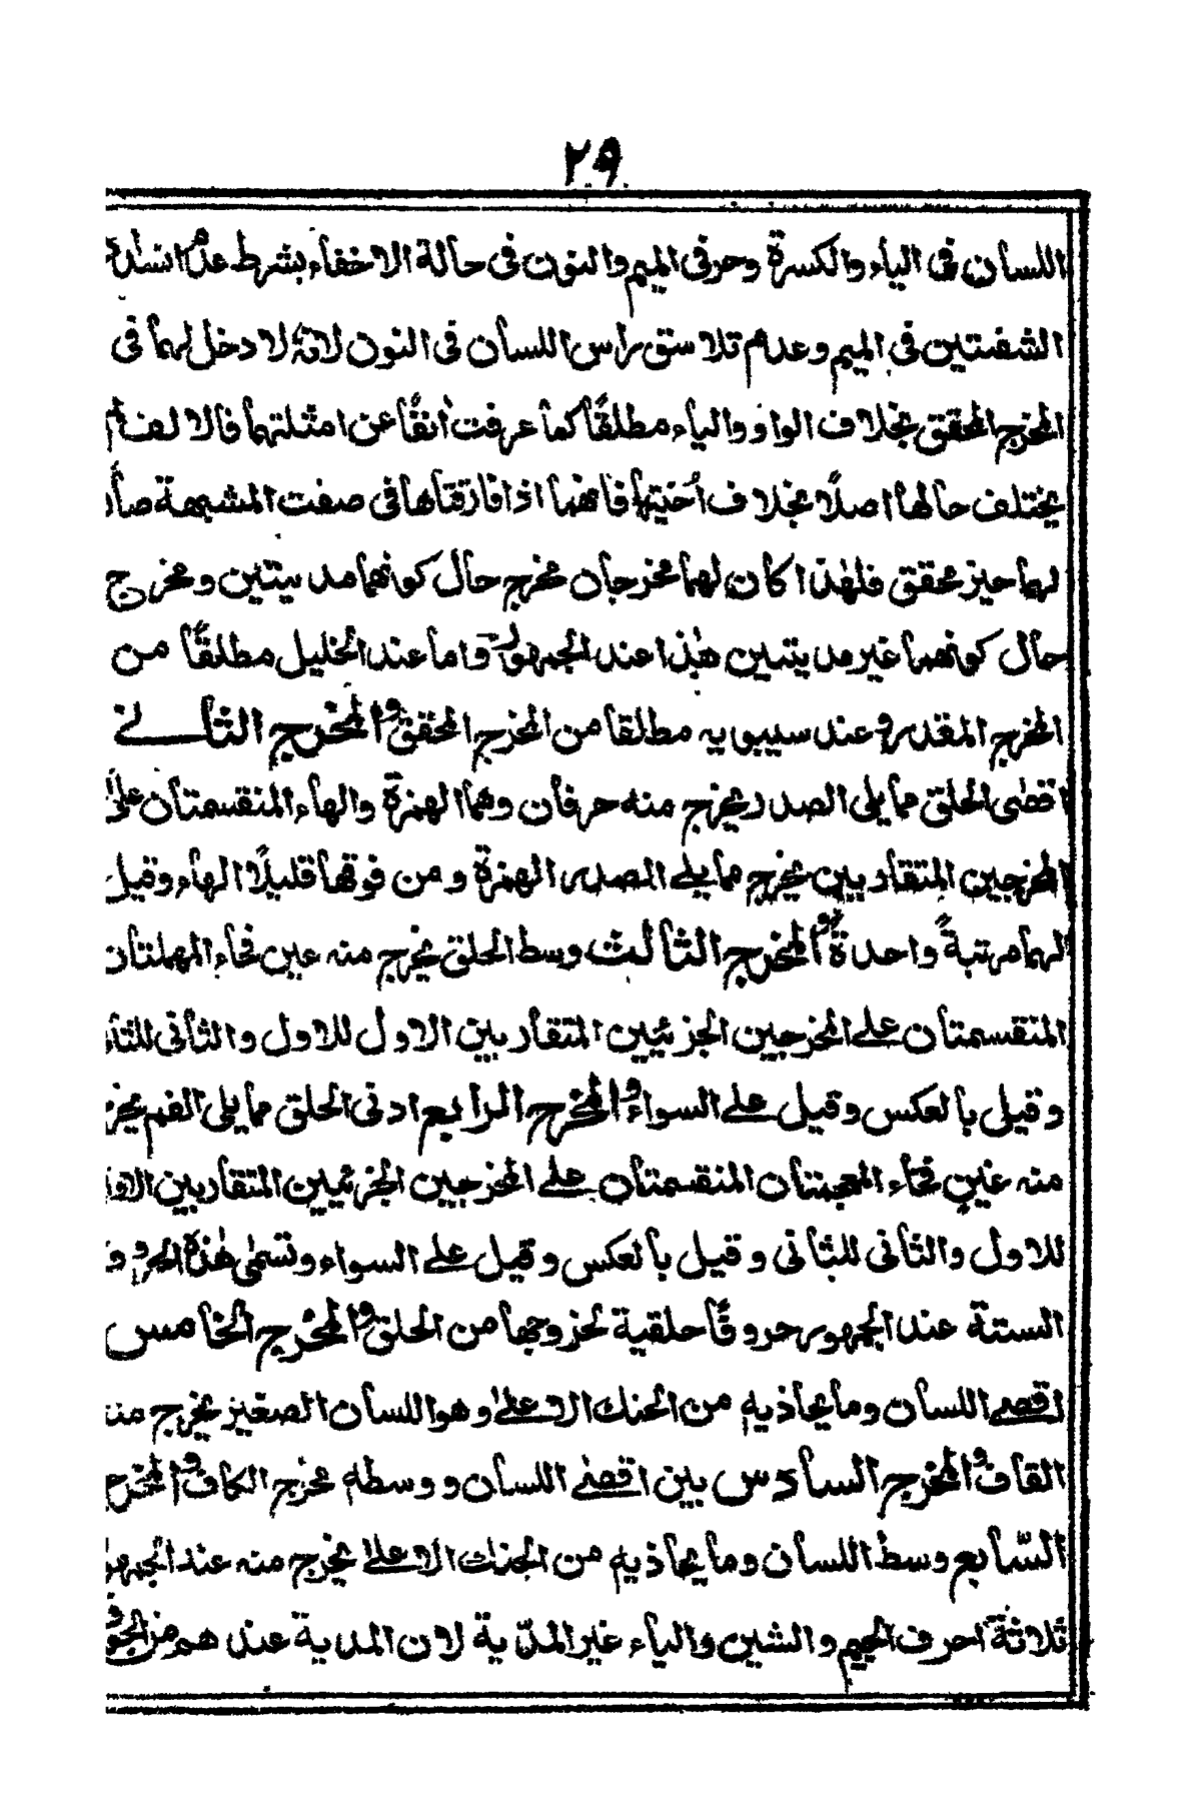 ٢٩
اللسان فی الیاء والکسرة وحرفی المیم والنون فی حالة الاخفاء بشرط عدم
الشفتین فی المیم وعدم تلاسق راس اللسان فی النون لانهٗ لا دخل لهما فی
المخرج المحقق بخلاف الواو والیاء مطلقًا کما عرفت اٰنفًا عن امثلتهما فالالف
یختلف حالها اصلًا بخلاف اُختیها فانهما اذا فارقتاها فی صفت المشبهة
لهما حیز محقق فلهٰذا کان لهما مخرجان مخرج حال کونهما مدیتین ومخرج
حال کونهما غیر مدیتین هٰذا عند الجمهور واما عند الخلیل مطلقًا من
المخرج المقدر وعند سیبویه مطلقا من المخرج المحقق والمخرج الثانے
اقصی الحلق مما یلی الصدر یخرج منه حرفان وهما الهمزة والهاء المنقسمتان علیٰ
المخرجین المتقاربین یخرج مما یلے الصدر الهمزة ومن فوقها قلیلًا الهاء وقیل
لهما مرتبةً واحدةً والمخرج الثالث وسط الحلق یخرج منه عین فحاء المهملتان
المنقسمتان علے المخرجین الجزئیین المتقاربین الاول للاول والثانی
وقیل بالعکس وقیل علے السواء والمخرج الرابع ادنی الحلق مما یلی الفم
منه غین فخاء المعجمتان المنقسمتان علے المخرجین الجزئیین المتقاربین
للاول والثانی للثانی وقیل بالعکس وقیل علے السواء وتسمٰی هٰذه
الستة عند الجمهور حروفًا حلقیة لخروجها من الحلق والمخرج الخامس
اقصے اللسان وما یحاذیه من الحنك الاعلےٰ وهو اللسان الصغیر یخرج منه
القاف والمخرج السادس بین اقصےٰ اللسان ووسطه مخرج الکاف والمخرج
السّابع وسط اللسان وما یحاذیه من الحنك الاعلےٰ یخرج منه عند
ثلاثة احرف الجیم والشین والیاء غیر المدّیة لان المدیة عند هم من